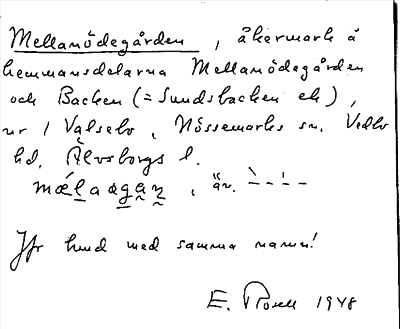 Mellanödegården, åkermark å
hemmansdelarna Mellanödegården
och Backen (= Sundsbacken ek),
nr 1 Valsebo, Nössemarks sn. Vedbo
hd. Älvsborgs l.
äv.
Jfr hmd med samma namn!
E. Rosell 1948